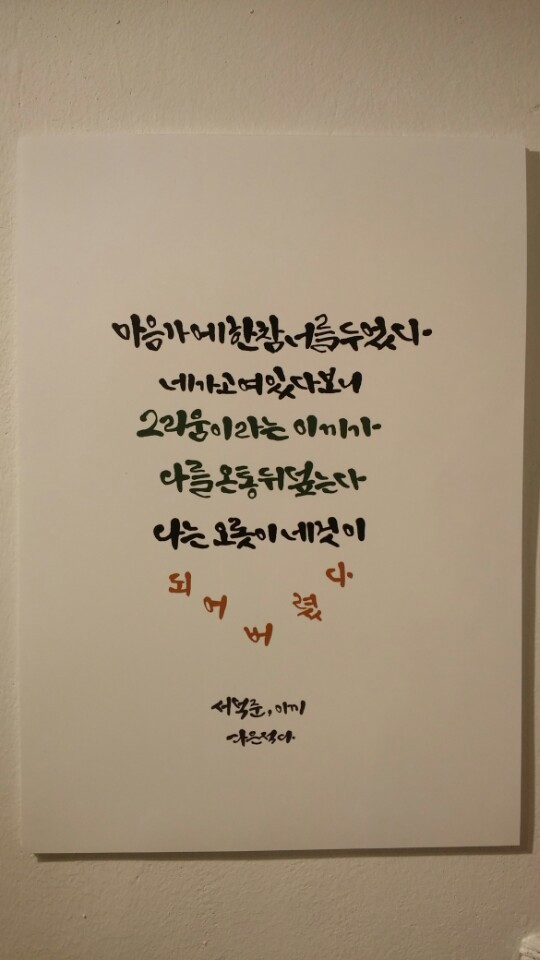 마음가에 한참 너를 두었다.
네가 고여있다보니
그리움이라는 이끼가
나를 온통 뒤덮는다
나는 오롯이 네것이
되어버렸다.
서덕준, 이끼
다은적다